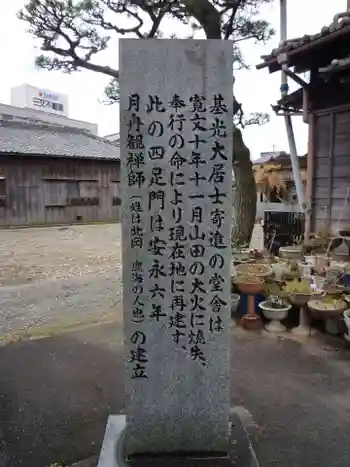 基光大居士寄進の堂舎は
寛文十年十一月山田の大火に焼失、
奉行の命により現在地に再建す、
此の四足門は安永六年
月舟観禅師（姓は北岡 鹿海の人也）の建立
三交不動産